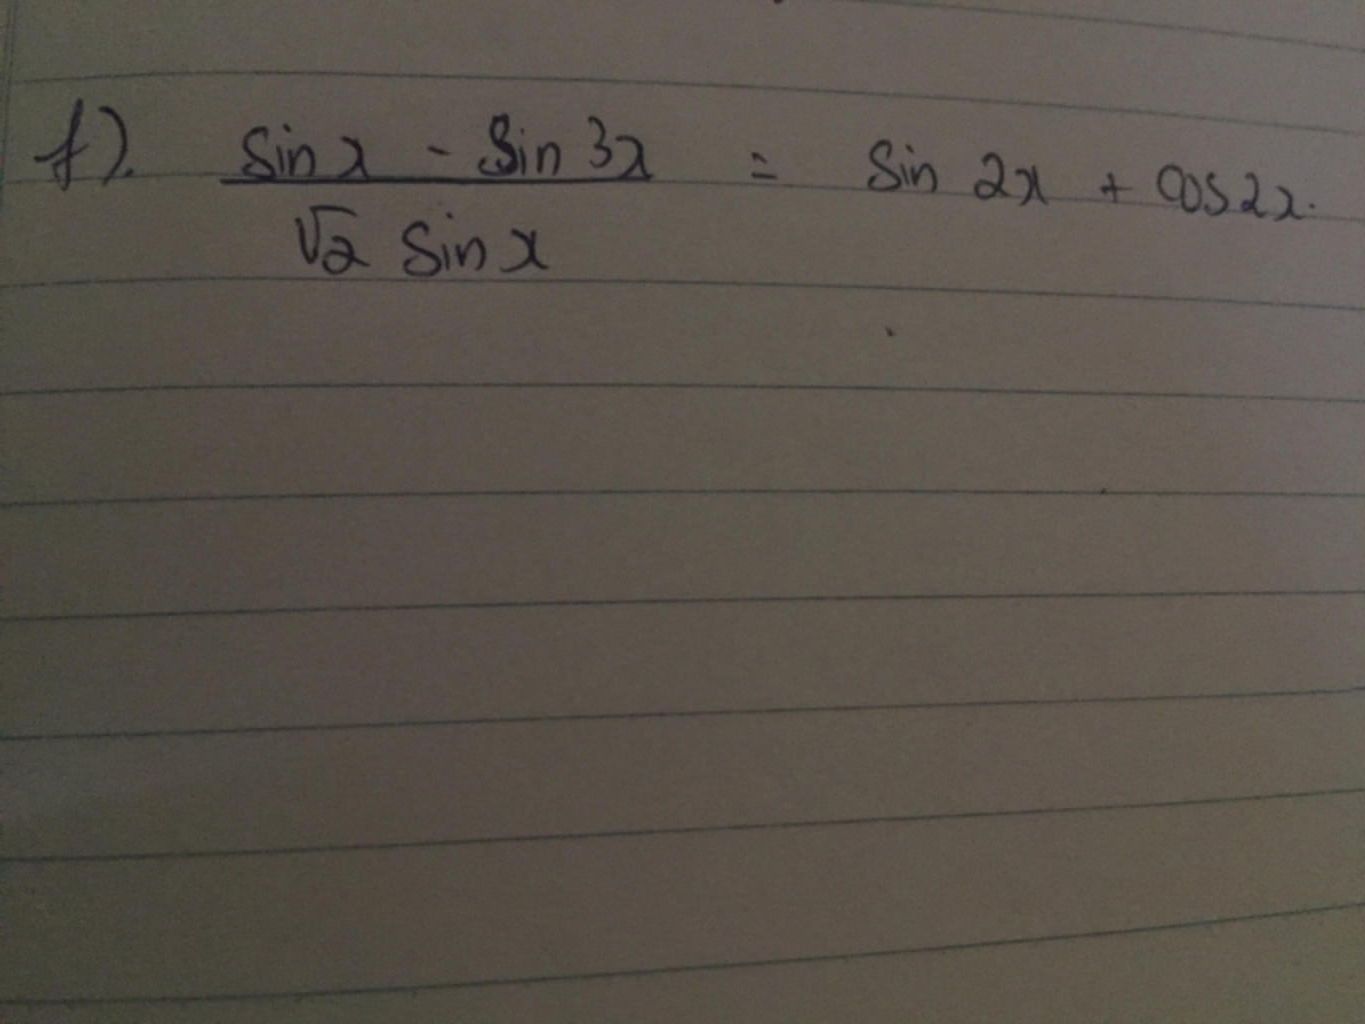 f). sin x - sin 3x = sin 2x + cos 2x.
√2 sin x